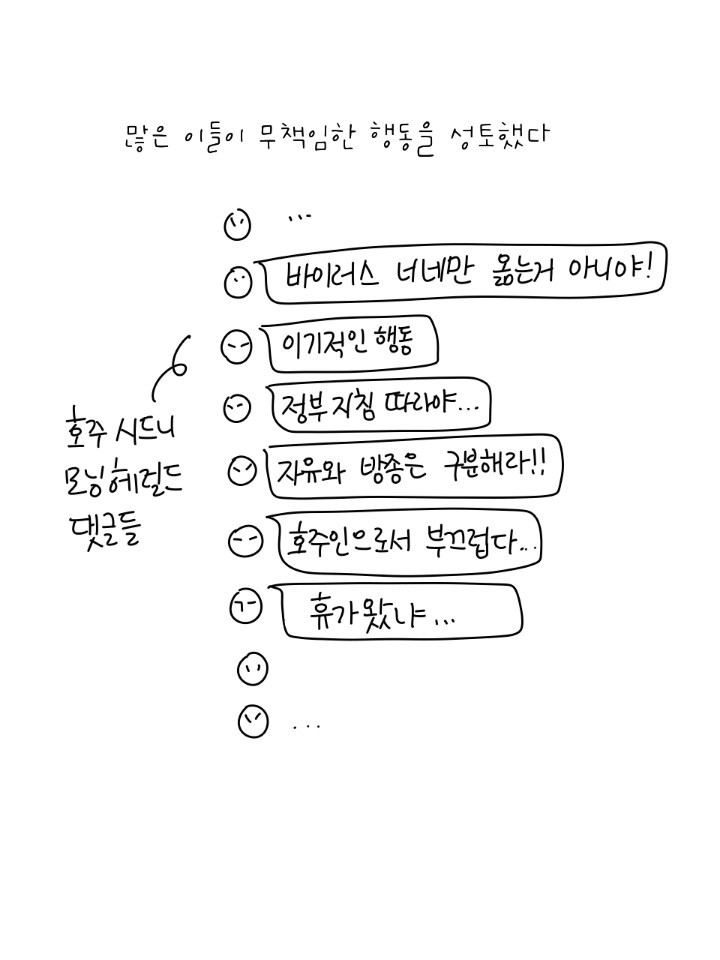 많은 이들이 무책임한 행동을 성토했다
...
바이러스 너네만 옮는거 아니야!
이기적인 행동
정부지침 따라야...
자유와 방종은 구분해라!!
호주인으로서 부끄럽다...
휴가왔냐...
...
호주 시드니
모닝헤럴드
댓글들